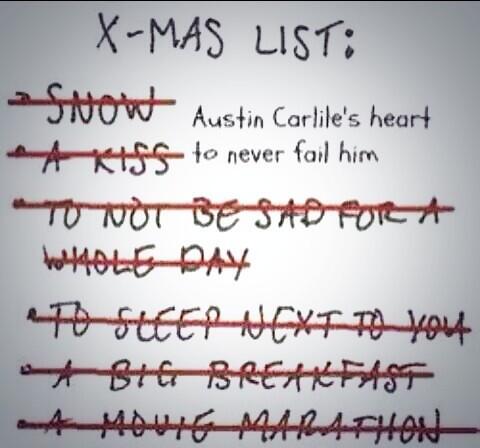 X-MAS LIST:
• SNOW
• A KISS
Austin Carlile's heart
to never fail him
• TO NOT BE SAD FOR A
WHOLE DAY
• TO SLEEP NEXT TO YOU
• A BIG BREAKFAST
• A MOVIE MARATHON